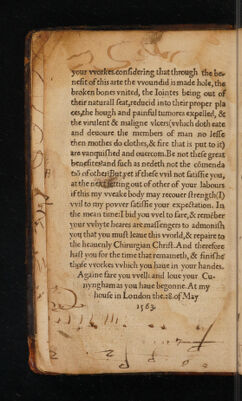 your vvorkes. considering that through the be-
nefit of this arte the vvoundid is made hole, the
broken bones vnited, the Iointes being out of
their naturall seat, reducid into their proper pla
ces, the hough and painful tumores expelled, &
the virulent & maligne vlcers (vvhich doth eate
and deuoure the members of man no lesse
then mothes do clothes, & fire that is put to it)
are vanquished and ouercom. Be not these great
benefites? and such as nedeth not the cõmenda
tiõ of other? But yet if these vvil not satisfie you,
at the next setting out of other of your labours
if this my vveake body may recouer strength (I)
vvil to my povver satisfie your expectation. In
the mean time: I bid you vvel to fare, & remẽber
your vvhyte heares are massengers to admonish
you that you must leaue this vvorld, & repaire to
the heauenly Chirurgian Christ. And therefore
hast you for the time that remaineth, & finishe
those vvorkes vvhich you haue in your handes.
Againe fare you vvell: and loue your Cu-
nyngham as you haue begonne. At my
house in London the .18. of May
1563.